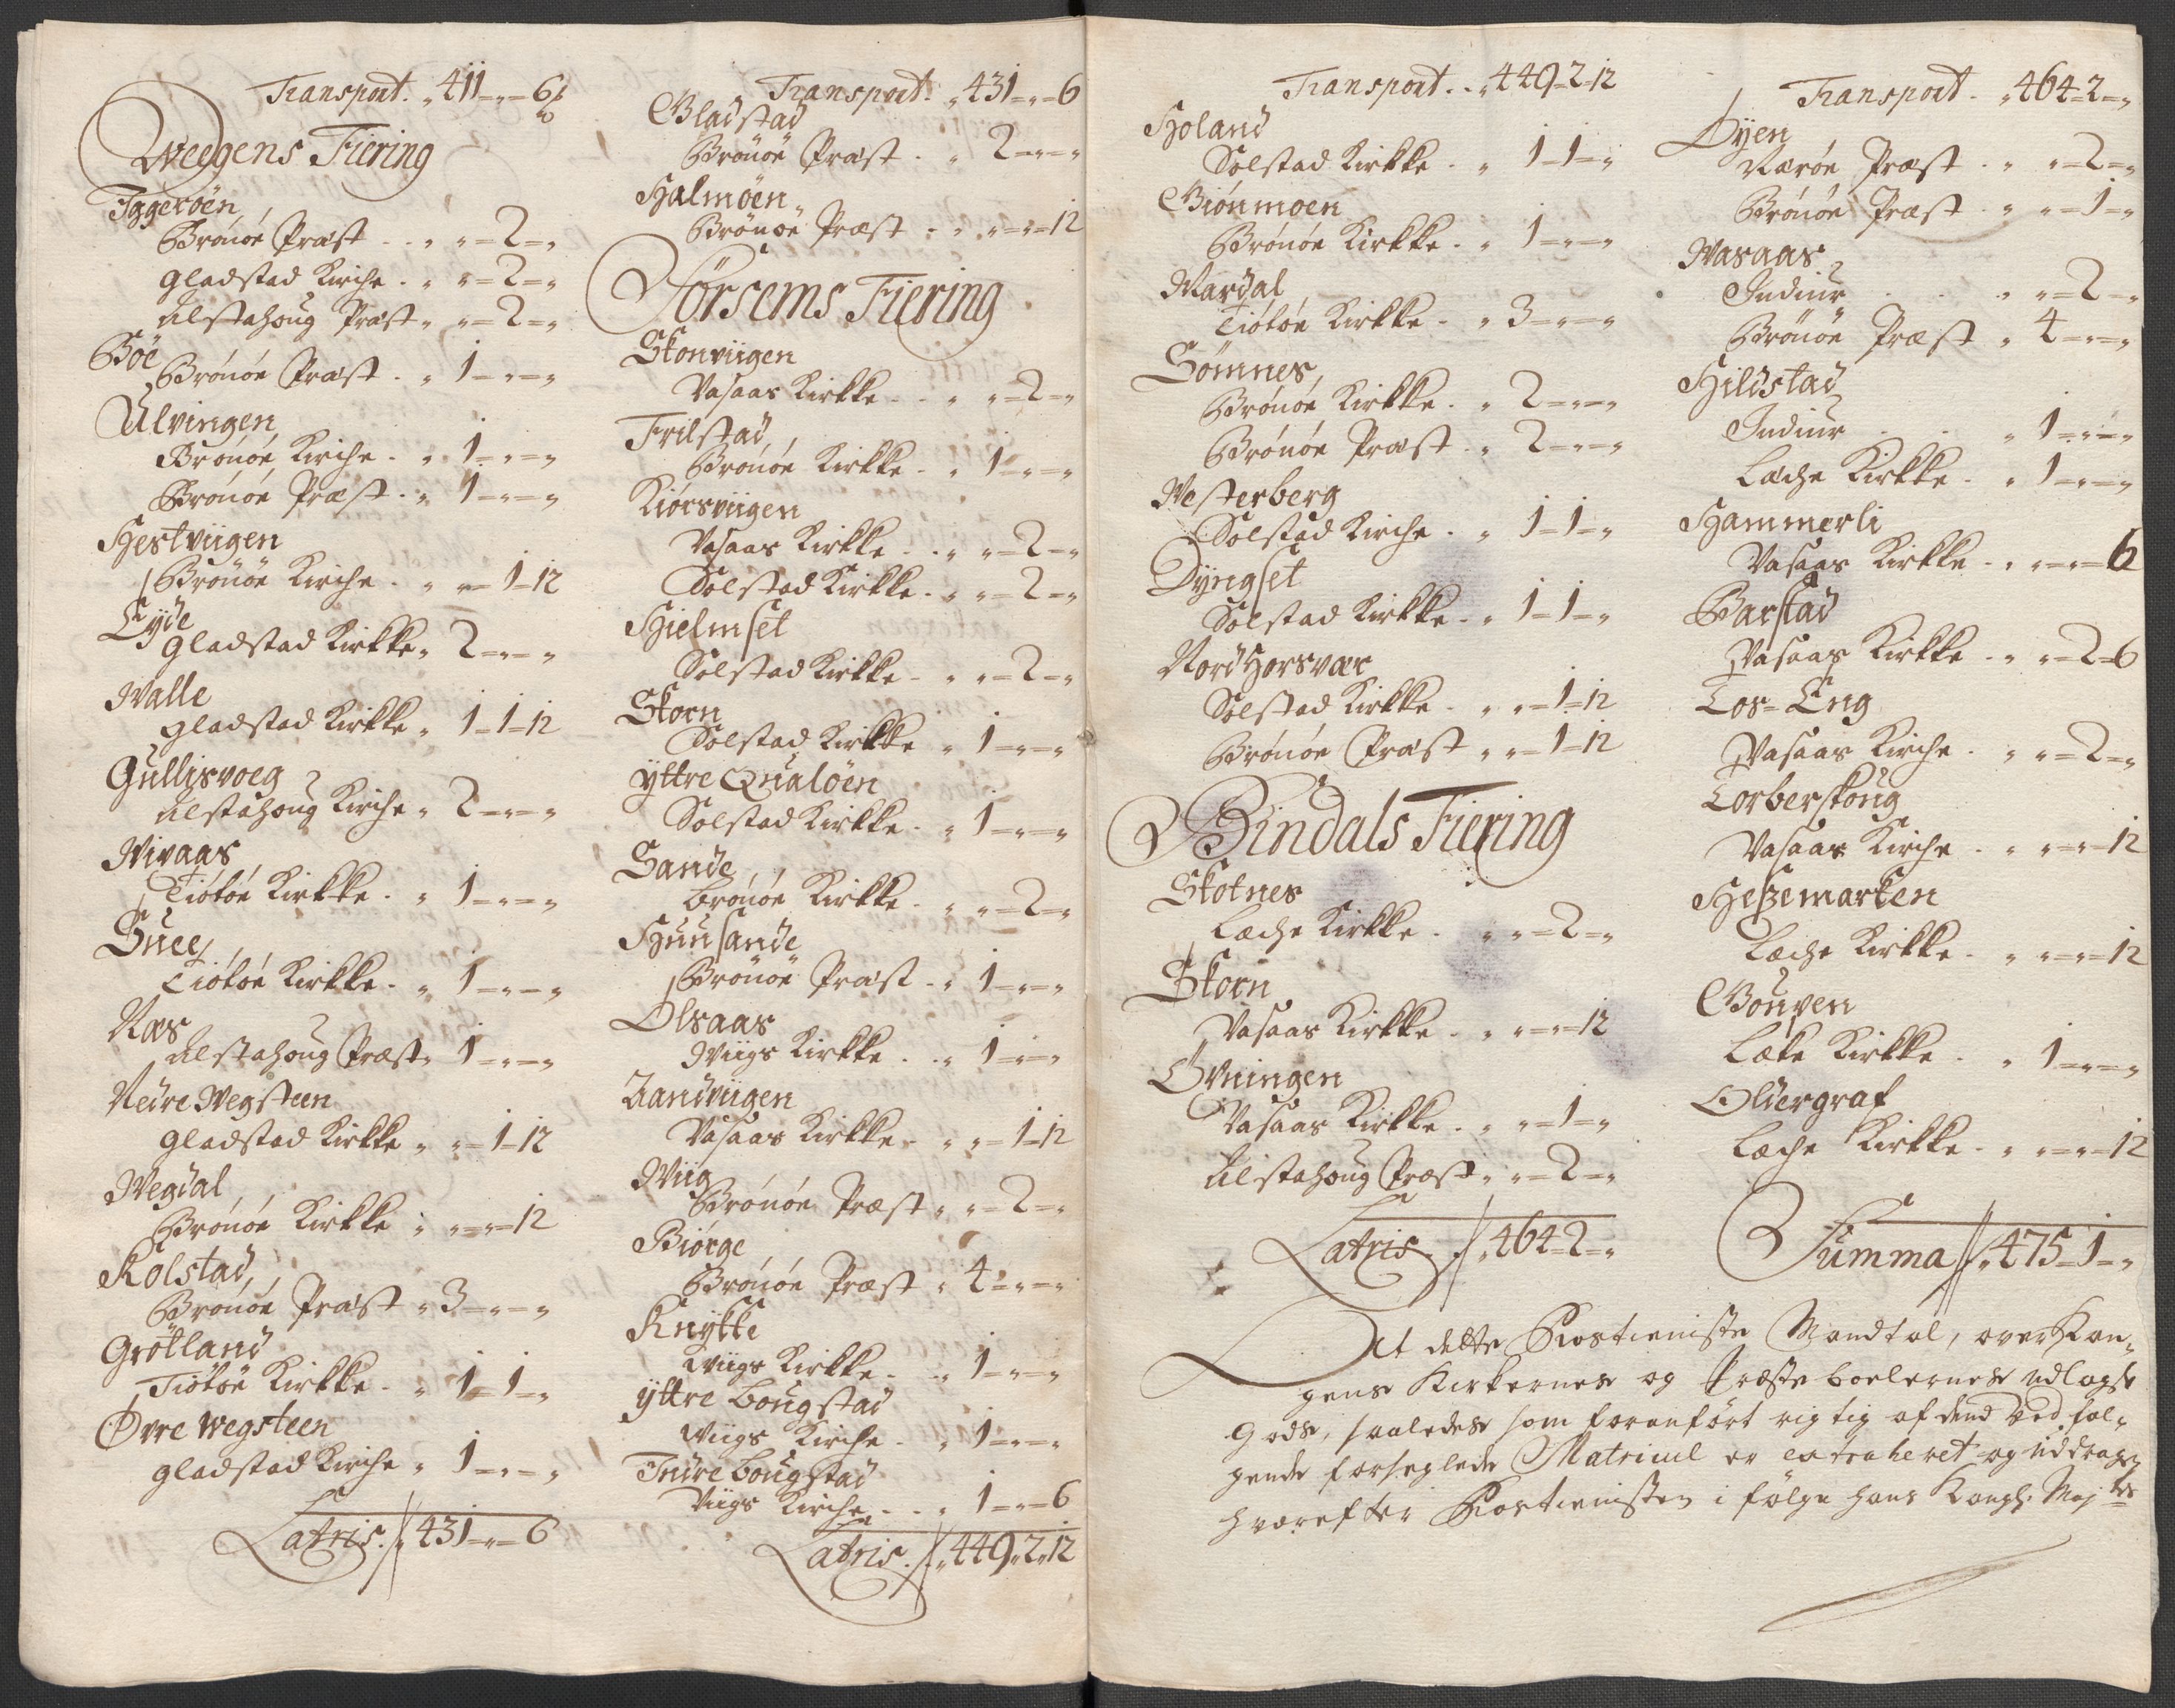 Transport. „ 411 – „ – 6
Weegens Fiering
Iggeröen
Brönöe Præst . . „ „ – 2 – „
Gladstad Kirche . „ „ – 2 – „
Alstahoug Præst „ „ – 2 – „
Böe
Brönöe Præst . „ 1 – „ – „
Ulvingen
Brönöe Kirche . „ 1 – „ – „
Brönöe Præst . „ 1 – „ – „
Hestviigen
Brönöe Kirche . „ „ – 1 – 12
Eyde
Gladstad Kirkke „ 2 – „ – „
Walle
Gladstad Kirkke „ 1 – 1 – 12
Gullisvoeg
Alstahoug Kirche „ 2 – „ – „
Wivaas
Tiötöe Kirkke . „ 1 – „ – „
Tiötöe Kirkke . „ 1 – „ – „
Næs
Alstahoug Præst „ 1 – „ – „
Nedre Wegsteen
Gladstad Kirkke „ „ – 1 – 12
Wegdal
Brönöe Kirkke „ „ – „ – 12
Kolstad
Brönöe Præst „ 3 – „ – „
Grötland
Tiötöe Kirkke . „ 1 – 1 – „
Övre Wegsteen
Gladstad Kirche „ 1 – „ – „
Latris . „ 431 – „ – 6
Transport. „ 431 – „ – 6
Gladstad
Brönöe Præst . „ 2 – „ – „
Halmöen
Brönöe Præst . „ „ – „ – 12
Törsems Fiering
Skonviigen
Vasaas Kirkke . . „ „ – 2 – „
Frilstad
Brönöe Kirkke . „ 1 – „ – „
Kiörsviigen
Vasaas Kirkke . . „ „ – 2 – „
Solstad Kirkke . „ „ – 2 – „
Hielmset
Solstad Kirkke . „ „ – 2 – „
Storn
Solstad Kirkke „ 1 – „ – „
Yttre Qualöen
Solstad Kirkke . „ 1 – „ – „
Sande
Brönöe Kirkke . „ „ – 2 – „
Huusande
Brönöe Præst . „ 1 – „ – „
Olsaas
Wiigs Kirkke . . „ 1 – „ – „
Aandviigen
Vasaas Kirkke . „ „ – 1 – 12
Wiig
Brönöe Præst „ „ – 2 – „
Biörge
Brönöe Præst „ 4 – „ – „
Knytte
Wiigs Kirkke . . „ 1 – „ – „
Yttre Bougstad
Wiigs Kirche . „ 1 – „ – „
Indre Bougstad
Viigs Kirche . . „ 1 – „ – 6
Latris . „ 449 „ 2 „ 12
Transport . . „ 449 – 2 – 12
Holand
Solstad Kirkke . „ 1 – 1 – „
Giönmoen
Brönöe Kirkke . „ 1 – „ – „
Mardal
Tiötöe Kirkke . „ 3 – „ – „
Sömnes
Brönöe Kirkke . „ 2 – „ – „
Brönöe Præst . „ 2 – „ – „
Westerberg
Solstad Kirche . „ 1 – 1 – „
Dyngset
Solstad Kirkke . „ 1 – 1 – „
Nord Horsvær
Solstad Kirkke . „ „ – 1 – 12
Brönöe Præst „ „ – 1 – 12
Bindals Fiering
Skotnes
Læche Kirkke . „ „ – 2 – „
Storn
Vasaas Kirkke . „ „ – „ – 12
Övningen
Vasaas Kirkke . „ „ – 1 – „
Alstahoug Præst „ „ – 2 – „
Latris . „ 464 – 2 – „
Transport . „ 464 – 2 – „
Öyen
Nærøe Præst . „ „ – 2 – „
Brönöe Præst . „ „ – 1 – „
Wasaas
Indiur . . „ „ – 2 – „
Brönöe Præst „ 4 – „ – „
Hildstad
Indiur . . „ 1 – „ – „
Læche Kirkke . „ 1 – „ – „
Hammerli
Vasaas Kirkke . „ „ – „ – 6
Barstad
Vasaas Kirkke . „ „ – 2 – 6
Tos-Eng
Vasaas Kirche . „ „ – 2 – „
Torberskoug
Vasaas Kirche . „ „ – „ – 12
Heszemarken
Læche Kirkke . „ „ – „ – 12
Gouven
Læke Kirkke . „ 1 – „ – „
Oldergraf
Læche Kirkke . „ „ – „ – 12
Summa „ 475 – 1 – „
At dette Rostieniste Mandtal, over Kon-
gens Kirkernes og Præste boelernes udlagde
Gods, saaledes som foranført rigtig af dend ved føl-
gende forseglede Matricul er extraheret og uddragen
hvorefter Rostienisten i følge hans Kongl. Majts